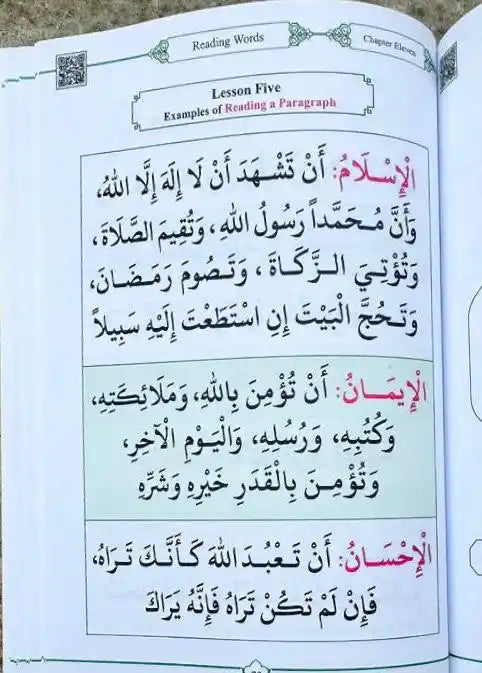 Reading Words
Chapter Eleven
Lesson Five
Examples of Reading a Paragraph
الْإِسْلَامُ: أَنْ تَشْهَدَ أَنْ لَا إِلَهَ إِلَّا اللهُ،
وَأَنَّ مُحَمَّداً رَسُولُ اللهِ، وَتُقِيمَ الصَّلَاةَ،
وَتُؤْتِيَ الزَّكَاةَ، وَتَصُومَ رَمَضَانَ،
وَتَحُجَّ الْبَيْتَ إِنِ اسْتَطَعْتَ إِلَيْهِ سَبِيلاً
الْإِيمَانُ: أَنْ تُؤْمِنَ بِاللهِ، وَمَلَائِكَتِهِ،
وَكُتُبِهِ، وَرُسُلِهِ، وَالْيَوْمِ الْآخِرِ،
وَتُؤْمِنَ بِالْقَدَرِ خَيْرِهِ وَشَرِّهِ
الْإِحْسَانُ: أَنْ تَعْبُدَ اللهَ كَأَنَّكَ تَرَاهُ،
فَإِنْ لَمْ تَكُنْ تَرَاهُ فَإِنَّهُ يَرَاكَ